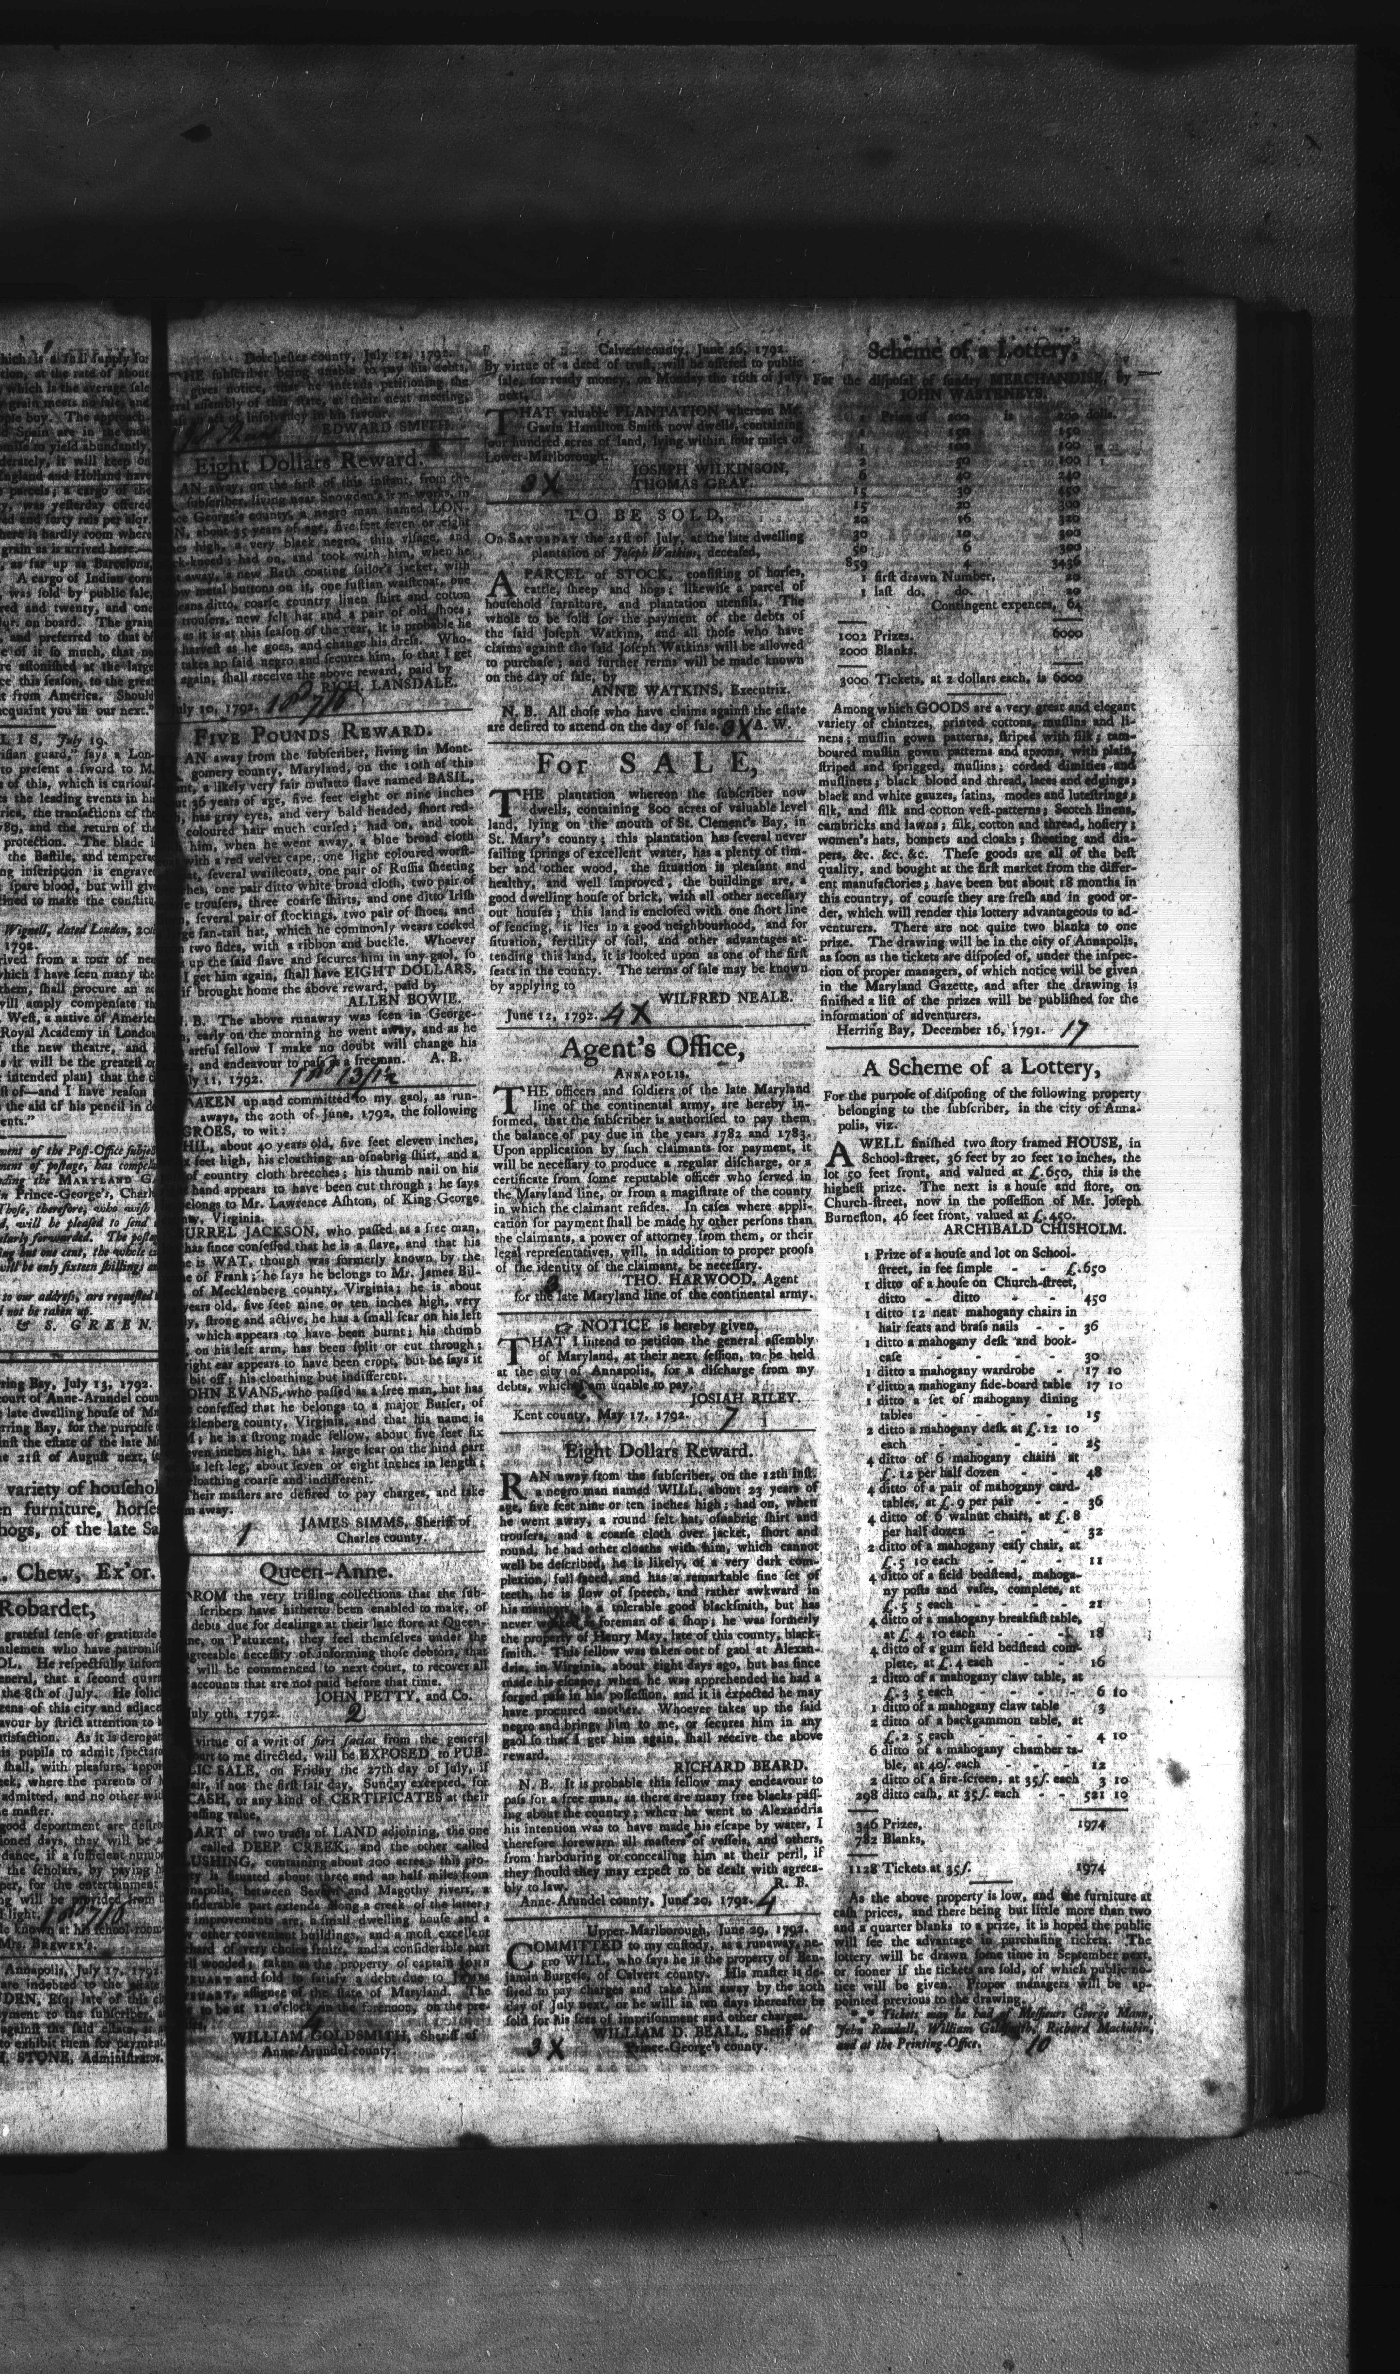 hich is a full supply for
tion, at the rate of about
which is the average sale
grain meets no sale, and
ople buy. The approach-
Spain are in the most
mise to yield abundantly,
derately, it will keep on
England and Holland have
parcels; a cargo of the
y, was yesterday offered
ed and forty rais per alqr.
here is hardly room where
grain as is arrived here.
, as far up as Barcelona,
A cargo of Indian corn
was sold by public sale,
red and twenty, and one
on board. The grain
and preferred to that of
e of it so much, that no
re astonished at the large
ce this season, to the great
t from America. Should
acquaint you in our next."
L I S, July 19.
risian guard, says a Lon-
to present a sword to M.
s of this, which is curious
s the leading events in his
rica, the transactions of the
789, and the return of the
protection. The blade i
the Bastile, and tempere
ng inscription is engrave
spare blood, but will give
lined to make the constitu
Wignell, dated London, 20
1792.
rived from a tour of ne
which I have seen many th
them, shall procure an a
will amply compensate th
West, a native of Americ
Royal Academy in London
f the new theatre, and
s it will be the greatest o
intended plan) that the d
st of—and I have reason
the aid of his pencil in de
ents."
ment of the Post-Office subje
ment of postage, has compel
nding the MARYLAND G
in Prince-George's, Charl
Those, therefore, who wish
d, will be pleased to send
larly forwarded. The posta
ing but one cent, the whole c
will be only sixteen shillings a
to our address, are requested
l not be taken up.
& S. GREEN.
rring Bay, July 13, 1792.
court of Anne-Arundel coun
late dwelling house of Mr
rring Bay, for the purpose
inst the estate of the late M
he 21st of August next, i
variety of househol
en furniture, horses
hogs, of the late Sa
. Chew, Ex'or.
Robardet,
grateful sense of gratitude
atlemen who have patronise
OL. He respectfully inform
eneral, that a second quart
the 8th of July. He solici
zens of this city and adjace
avour by strict attention to
atisfaction. As it is derogat
is pupils to admit spectato
shall, with pleasure, appoi
eek, where the parents of
admitted, and no other wil
e master.
good deportment are desiro
tioned days, they will be a
dance, if a sufficient numbe
the scholars, by paying h
per, for the entertainment
ng will be provided from
light.
be known at his school-room
Mrs. BREWER'S.
Annapolis, July 17, 1792.
are indebted to the estate
DEN, Esq; late of this ci
yment to the subscriber, a
against the said estate, a
to exhibit them for payment
STONE, Administrator.
Dorchester county, July 12, 1792.
THE subscriber being unable to pay his debts,
gives notice, that he intends petitioning the
ral assembly of this state, at their next meeting,
an act of insolvency in his favour.
EDWARD SMITH.
Eight Dollars Reward.
AN away, on the first of this instant, from the
subscriber, living near Snowden's iron works, in
ce George's county, a negro man named LON-
N, about 35 years of age, five feet seven or eight
es high, a very black negro, thin visage, and
ck kneed; had on, and took with him, when he
t away, a new Bath coating sailor's jacket, with
ow metal buttons on it, one fustian waistcoat, one
eans ditto, coarse country linen shirt and cotton
trousers, new felt hat and a pair of old shoes;
as it is at this season of the year, it is probable he
harvest as he goes, and change his dress. Who-
takes up said negro and secures him, so that I get
again, shall receive the above reward, paid by
RICH. LANSDALE.
uly 10, 1792.
FIVE POUNDS REWARD.
AN away from the subscriber, living in Mont-
gomery county, Maryland, on the 10th of this
nt, a likely very fair mulatto slave named BASIL,
ut 36 years of age, five feet eight or nine inches
h, has grey eyes, and very bald headed, short red-
coloured hair much curled; had on, and took
h him, when he went away, a blue broad cloth
oat with a red velvet cape, one light coloured worst-
at, several waistcoats, one pair of Russia sheeting
ches, one pair ditto white broad cloth, two pair of
e trousers, three coarse shirts, and one ditto Irish
n, several pair of stockings, two pair of shoes, and
rge fan-tail hat, which he commonly wears cocked
n two sides, with a ribbon and buckle. Whoever
up the said slave and secures him in any gaol, so
I get him again, shall have EIGHT DOLLARS,
if brought home the above reward, paid by
ALLEN BOWIE.
. B. The above runaway was seen in George-
, early on the morning he went away, and as he
artful fellow I make no doubt will change his
, and endeavour to pass as a freeman. A. B.
ly 11, 1792.
TAKEN up and committed to my gaol, as run-
aways, the 20th of June, 1792, the following
GROES, to wit:
HIL, about 40 years old, five feet eleven inches,
x feet high, his cloathing an osnabrig shirt, and a
of country cloth breeches; his thumb nail on his
hand appears to have been cut through; he says
elongs to Mr. Lawrence Ashton, of King George
nty, Virginia.
URREL JACKSON, who passed as a free man,
has since confessed that he is a slave, and that his
e is WAT, though was formerly known by the
e of Frank; he says he belongs to Mr. James Bil-
of Mecklenberg county, Virginia; he is about
years old, five feet nine or ten inches high, very
y, strong and active, he has a small scar on his left
, which appears to have been burnt; his thumb
on his left arm, has been split or cut through;
right ear appears to have been cropt, but he says it
bit off; his cloathing but indifferent.
OHN EVANS, who passed as a free man, but has
confessed that he belongs to a major Butler, of
cklenberg county, Virginia, and that his name is
; he is a strong made fellow, about five feet six
even inches high, has a large scar on the hind part
is left leg, about seven or eight inches in length;
cloathing coarse and indifferent.
Their masters are desired to pay charges, and take
m away.
JAMES SIMMS, Sheriff of
1 Charles county.
Queen-Anne.
FROM the very trifling collections that the sub-
scribers have hitherto been enabled to make, of
debts due for dealings at their late store at Queen-
ne, on Patuxent, they feel themselves under the
greeable necessity of informing those debtors, that
will be commenced to next court, to recover all
accounts that are not paid before that time.
JOHN PETTY, and Co.
July 9th, 1792. 2
virtue of a writ of fieri facias from the general
ourt to me directed, will be EXPOSED to PUB-
LIC SALE, on Friday the 27th day of July, if
air, if not the first fair day, Sunday excepted, for
CASH, or any kind of CERTIFICATES at their
passing value,
PART of two tracts of LAND adjoining, the one
called DEEP CREEK, and the other called
USHING, containing about 200 acres; this pro-
ty is situated about three and an half miles from
nnapolis, between Severn and Magothy rivers, a
nsiderable part extends along a creek of the latter;
improvements are, a small dwelling house and a
other convenient buildings, and a most excellent
chard of very choice fruits, and a considerable part
ll wooded; taken as the property of captain JOHN
and sold to satisfy a debt due to
assignee of the state of Maryland. The
to be at 11 o'clock in the forenoon, on the pre-
WILLIAM GOLDSMITH, Sheriff of
Anne-Arundel county.
Calvert county, June 26, 1792.
By virtue of a deed of trust, will be offered to public
sale, for ready money, on Monday the 16th of July
next,
THAT valuable PLANTATION whereon Mr.
Gavin Hamilton Smith now dwells, containing
four hundred acres of land, lying within four miles of
Lower-Marlborough.
JOSEPH WILKINSON,
3 X THOMAS GRAY.
TO BE SOLD,
On SATURDAY the 21st of July, at the late dwelling
plantation of Joseph Watkins, deceased,
A PARCEL of STOCK, consisting of horses,
cattle, sheep and hogs; likewise a parcel of
household furniture, and plantation utensils. The
whole to be sold for the payment of the debts of
the said Joseph Watkins, and all those who have
claims against the said Joseph Watkins will be allowed
to purchase; and further terms will be made known
on the day of sale, by
ANNE WATKINS, Executrix.
N. B. All those who have claims against the estate
are desired to attend on the day of sale. 3X A. W.
For SALE,
THE plantation whereon the subscriber now
dwells, containing 800 acres of valuable level
land, lying on the mouth of St. Clement's Bay, in
St. Mary's county; this plantation has several never
failing springs of excellent water, has a plenty of tim-
ber and other wood, the situation is pleasant and
healthy, and well improved, the buildings are, a
good dwelling house of brick, with all other necessary
out houses; this land is enclosed with one short line
of fencing, it lies in a good neighbourhood, and for
situation, fertility of soil, and other advantages at-
tending this land, it is looked upon as one of the first
seats in the county. The terms of sale may be known
by applying to
WILFRED NEALE.
June 12, 1792. 4X
Agent's Office,
ANNAPOLIS.
THE officers and soldiers of the late Maryland
line of the continental army, are hereby in-
formed, that the subscriber is authorised to pay them
the balance of pay due in the years 1782 and 1783.
Upon application by such claimants for payment, it
will be necessary to produce a regular discharge, or a
certificate from some reputable officer who served in
the Maryland line, or from a magistrate of the county
in which the claimant resides. In cases where appli-
cation for payment shall be made by other persons than
the claimants, a power of attorney from them, or their
legal representatives, will, in addition to proper proofs
of the identity of the claimant, be necessary.
THO. HARWOOD, Agent
for the late Maryland line of the continental army.
☞ NOTICE is hereby given,
THAT I intend to petition the general assembly
of Maryland, at their next session, to be held
at the city of Annapolis, for a discharge from my
debts, which I am unable to pay.
JOSIAH RILEY.
Kent county, May 17, 1792. 7
Eight Dollars Reward.
RAN away from the subscriber, on the 12th inst.
a negro man named WILL, about 23 years of
age, five feet nine or ten inches high; had on, when
he went away, a round felt hat, osnabrig shirt and
trousers, and a coarse cloth over jacket, short and
round, he had other cloaths with him, which cannot
well be described; he is likely, of a very dark com-
plexion, full faced, and has a remarkable fine set of
teeth, he is slow of speech, and rather awkward in
his manners, is a tolerable good blacksmith, but has
never worked as foreman of a shop; he was formerly
the property of Henry May, late of this county, black-
smith. This fellow was taken out of gaol at Alexan-
dria, in Virginia, about eight days ago, but has since
made his escape; when he was apprehended he had a
forged pass in his possession, and it is expected he may
have procured another. Whoever takes up the said
negro and brings him to me, or secures him in any
gaol so that I get him again, shall receive the above
reward.
RICHARD BEARD.
N. B. It is probable this fellow may endeavour to
pass for a free man, as there are many free blacks pass-
ing about the country; when he went to Alexandria
his intention was to have made his escape by water, I
therefore forewarn all masters of vessels, and others,
from harbouring or concealing him at their peril, if
they should they may expect to be dealt with agreea-
bly to law. R. B.
Anne-Arundel county, June 20, 1792. 4
Upper-Marlborough, June 29, 1792.
COMMITTED to my custody, as a runaway, ne-
gro WILL, who says he is the property of Ben-
jamin Burgess, of Calvert county. His master is de-
sired to pay charges and take him away by the 20th
day of July next, or he will in ten days thereafter be
sold for his fees of imprisonment and other charges.
WILLIAM D. BEALL, Sheriff of
3X Prince-George's county.
Scheme of a Lottery,
For the disposal of sundry MERCHANDISE, by
JOHN WASTENEYS.
1 Prize of 200 is 200 dolls.
1 150 150
1 100 100
2 50 100
6 40 240
15 30 450
15 20 300
20 16 320
30 10 300
50 6 300
859 4 3436
1 first drawn Number, 20
1 last do. do. 20
Contingent expences, 64
1002 Prizes. 6000
2000 Blanks.
3000 Tickets, at 2 dollars each, is 6000
Among which GOODS are a very great and elegant
variety of chintzes, printed cottons, muslins and li-
nens; muslin gown patterns, striped with silk; tam-
boured muslin gown patterns and aprons, with plain,
striped and sprigged, muslins; corded dimities and
muslinets; black blond and thread, laces and edgings;
black and white gauzes, satins, modes and lutestrings;
silk, and silk and cotton vest-patterns; Scotch linens,
cambricks and lawns; silk, cotton and thread, hosiery;
women's hats, bonnets and cloaks; sheeting and dia-
pers, &c. &c. &c. These goods are all of the best
quality, and bought at the first market from the differ-
ent manufactories; have been but about 18 months in
this country, of course they are fresh and in good or-
der, which will render this lottery advantageous to ad-
venturers. There are not quite two blanks to one
prize. The drawing will be in the city of Annapolis,
as soon as the tickets are disposed of, under the inspec-
tion of proper managers, of which notice will be given
in the Maryland Gazette, and after the drawing is
finished a list of the prizes will be published for the
information of adventurers.
Herring Bay, December 16, 1791. 17
A Scheme of a Lottery,
For the purpose of disposing of the following property
belonging to the subscriber, in the city of Anna-
polis, viz.
A WELL finished two story framed HOUSE, in
School-street, 36 feet by 20 feet 10 inches, the
lot 50 feet front, and valued at £.650, this is the
highest prize. The next is a house and store, on
Church-street, now in the possession of Mr. Joseph
Burneston, 46 feet front, valued at £.450.
ARCHIBALD CHISHOLM.
1 Prize of a house and lot on School-
street, in fee simple - - £.650
1 ditto of a house on Church-street,
ditto - ditto - - 450
1 ditto 12 neat mahogany chairs in
hair seats and brass nails - - 36
1 ditto a mahogany desk and book-
case - - - 30
1 ditto a mahogany wardrobe - 17 10
1 ditto a mahogany side-board table 17 10
1 ditto a set of mahogany dining
tables - - - - 15
2 ditto a mahogany desk at £.12 10
each - - 25
4 ditto of 6 mahogany chairs at
£.12 per half dozen - - 48
4 ditto of a pair of mahogany card-
tables, at £.9 per pair - - 36
4 ditto of 6 walnut chairs, at £.8
per half dozen - - - 32
2 ditto of a mahogany easy chair, at
£.5 10 each - - - 11
4 ditto of a field bedstead, mahoga-
ny posts and vases, complete, at
£.5 5 each - - - 21
4 ditto of a mahogany breakfast table,
at £.4 10 each - - - 18
4 ditto of a gum field bedstead com-
plete, at £.4 each - - 16
2 ditto of a mahogany claw table, at
£.3 5 each - - - 6 10
1 ditto of a mahogany claw table 3
2 ditto of a backgammon table, at
£.2 5 each - - - 4 10
6 ditto of a mahogany chamber ta-
ble, at 40s. each - - 12
2 ditto of a fire-screen, at 35s. each 3 10
298 ditto cash, at 35s. each - - 521 10
346 Prizes, 1974
782 Blanks,
1128 Tickets at 35s. 1974
As the above property is low, and the furniture at
cash prices, and there being but little more than two
and a quarter blanks to a prize, it is hoped the public
will see the advantage in purchasing tickets. The
lottery will be drawn some time in September next,
or sooner if the tickets are sold, of which public no-
tice will be given. Proper managers will be ap-
pointed previous to the drawing.
Tickets may be had of Messieurs George Mann,
John Randall, William Goldsmith, Richard Mackubin,
and at the Printing-Office. 10